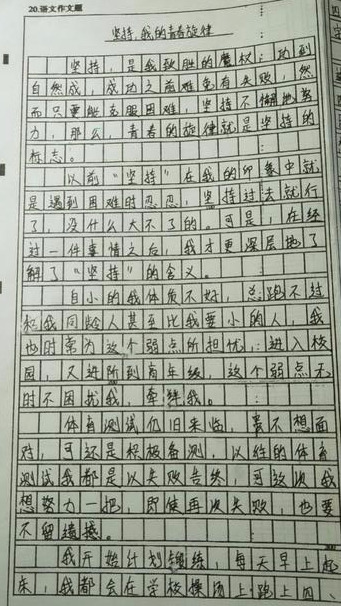 20.语文作文题
坚持,我的青春旋律
坚持,是我致胜的魔杖;功到
自然成,成功之前难免有失败,然
而只要能克服困难,坚持不懈地努
力,那么,青春的旋律就是坚持的
标志。
以前“坚持”在我的印象中就
是遇到困难时忍忍,坚持过去就行
了,没什么大不了的。可是,在经
过一件事情之后,我才更深层地了
解了“坚持”的含义。
自小的我体质不好,总跑不过
和我同龄人甚至比我要小的人,我
也时常为这个弱点所担忧;进入校
园,又进阶到青年级,这个弱点无
时不困扰我,牵绊我。
体育测试仍旧来临,虽不想面
对,可还是积极备测,以往的体育
测试我都是以失败告终,可这次我
想努力一把,即使再次失败,也要
不留遗憾。
我开始计划锻练,每天早上起
床,我都会在学校操场上跑上四、